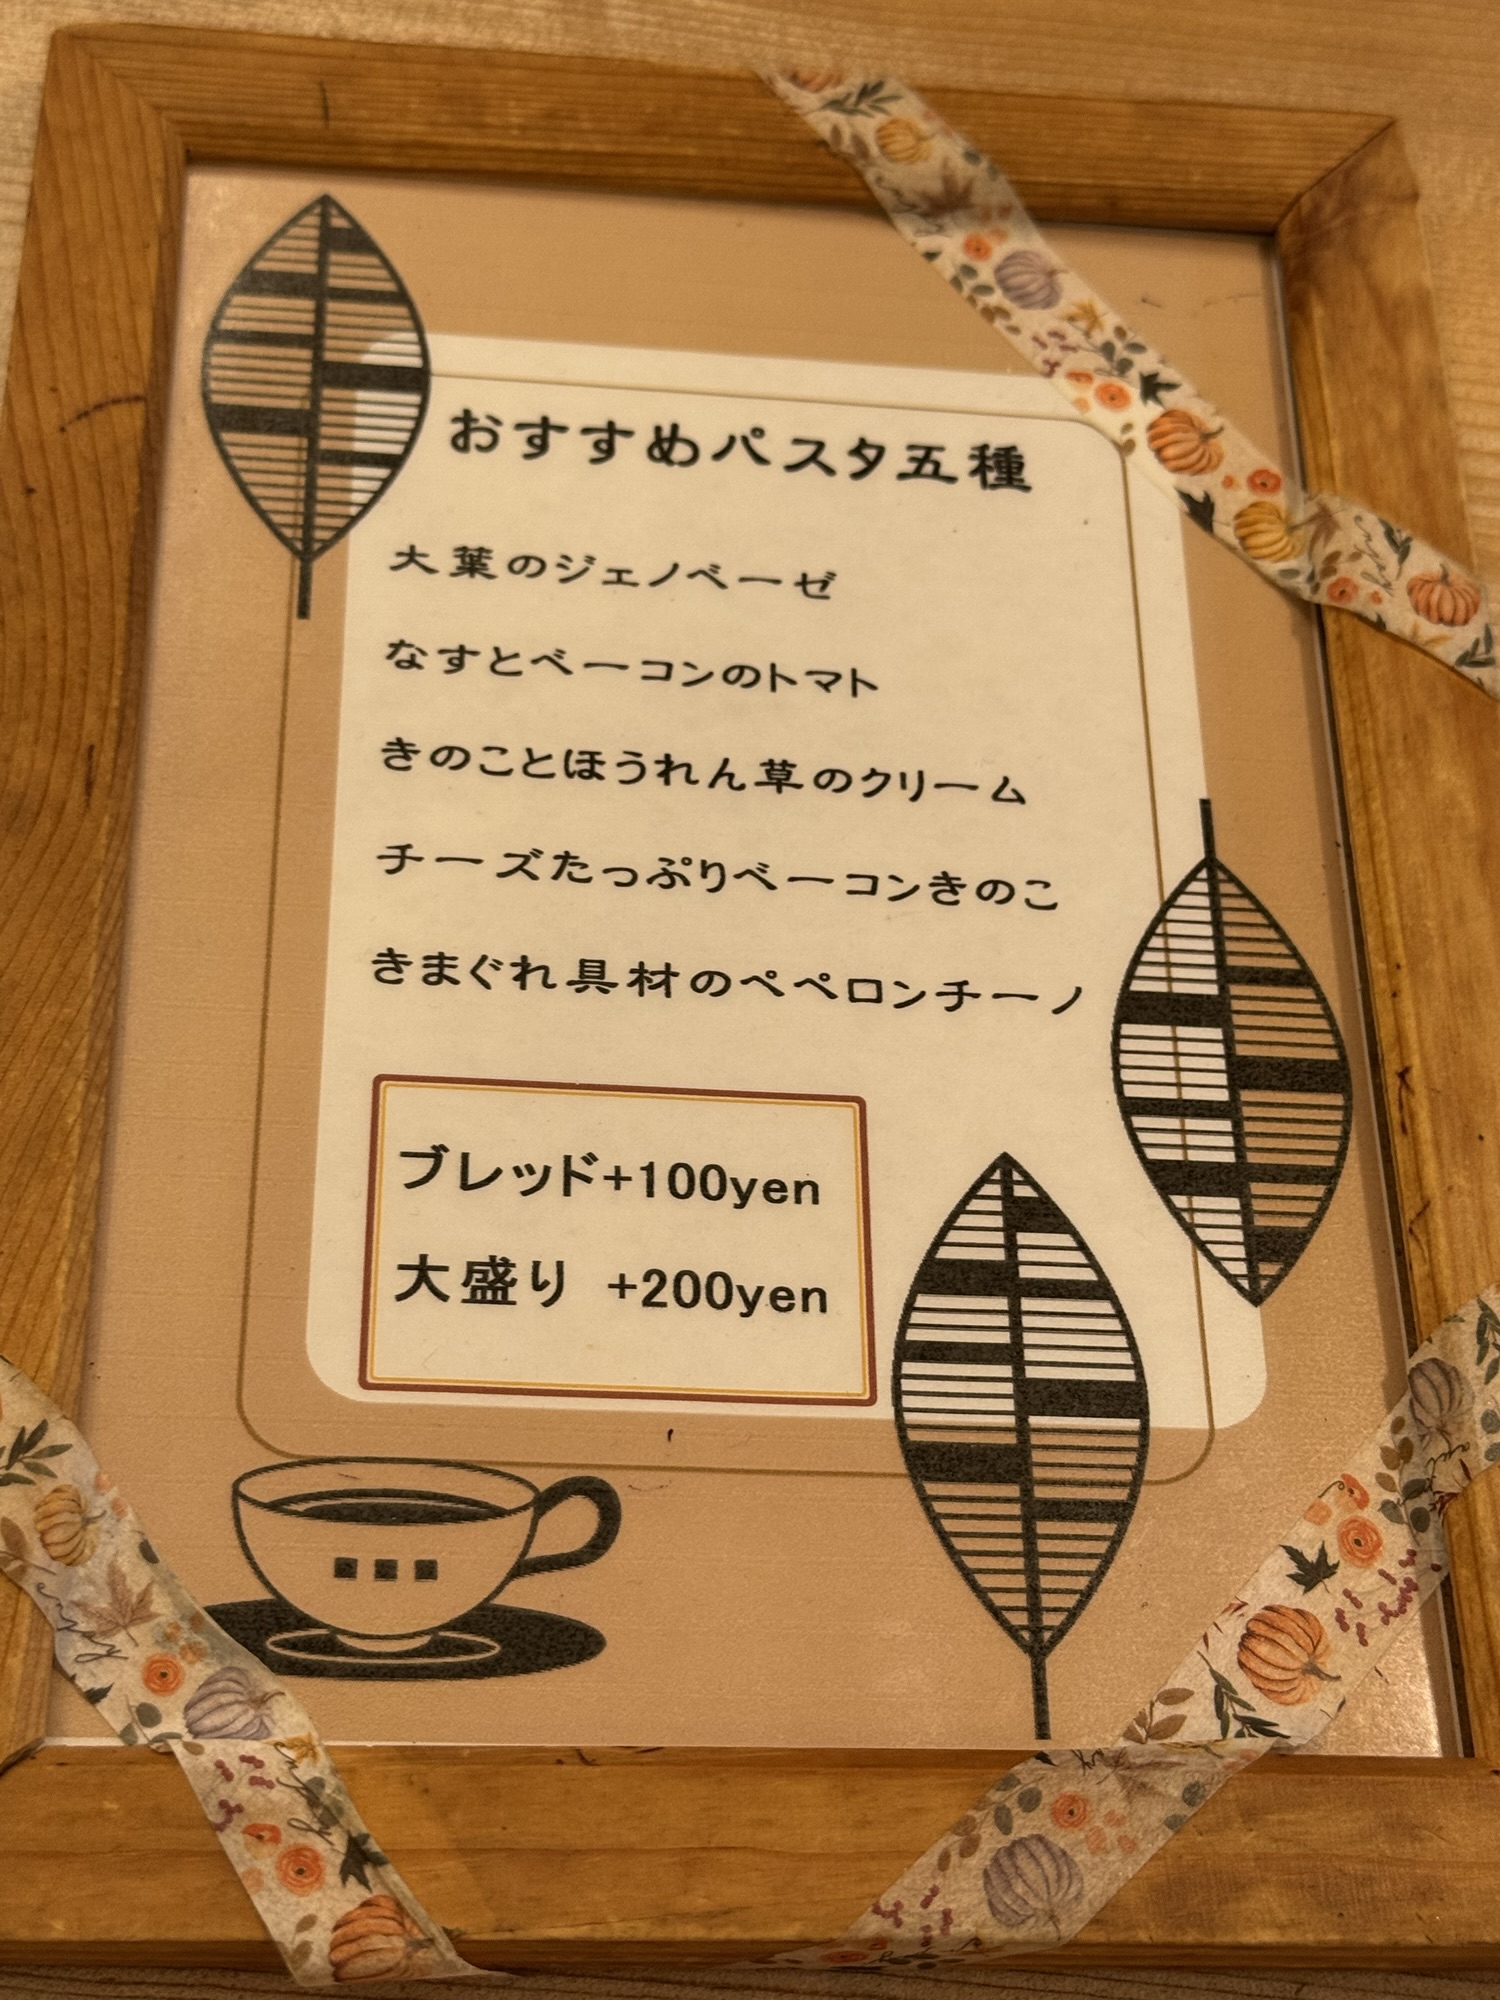 おすすめパスタ五種
大葉のジェノベーゼ
なすとベーコンのトマト
きのことほうれん草のクリーム
チーズたっぷりベーコンきのこ
きまぐれ具材のペペロンチーノ
ブレッド+100yen
大盛り +200yen